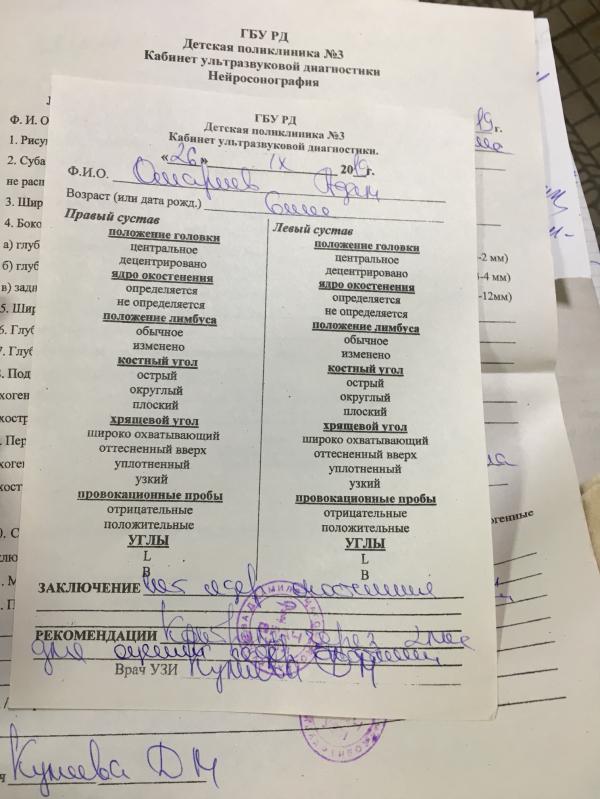 ГБУ РД
Детская поликлиника №3
Кабинет ультразвуковой диагностики
Нейросонография
Ф. И. О
1. Рисун
2. Суба
не расп
3. Шир
4. Боко
а) глуб
б) глуб
в) задн
5. Шир
6. Глуб
7. Глуб
-2 мм)
-4 мм)
-12мм)
19г.
ГБУ РД
Детская поликлиника №3
Кабинет ультразвуковой диагностики.
«26» IX 2019г.
Ф.И.О. Омариев Адам
Возраст (или дата рожд.) 6
Правый сустав
положение головки
центральное
децентрировано
ядро окостенения
определяется
не определяется
положение лимбуса
обычное
изменено
костный угол
острый
округлый
плоский
хрящевой угол
широко охватывающий
оттесненный вверх
уплотненный
узкий
провокационные пробы
отрицательные
положительные
УГЛЫ
L
B
Левый сустав
положение головки
центральное
децентрировано
ядро окостенения
определяется
не определяется
положение лимбуса
обычное
изменено
костный угол
острый
округлый
плоский
хрящевой угол
широко охватывающий
оттесненный вверх
уплотненный
узкий
провокационные пробы
отрицательные
положительные
УГЛЫ
L
B
ЗАКЛЮЧЕНИЕ нет ядер окостенения
РЕКОМЕНДАЦИИ через 2 мес
для оценки
Врач УЗИ Кунеева Д М
Кунеева Д М